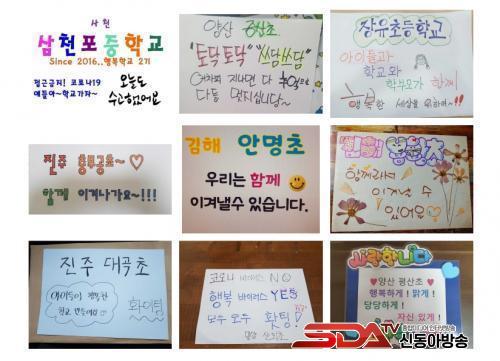 사천
삼천포중학교
Since 2016..행복학교 2기
접근금지! 코로나19
얘들아~학교가자~
오늘도
수고했어요
양산
"토닥토닥" "쓰담쓰담"
어차피 지나면 다 추억으로
다들 멋지십니다~
장유초등학교
아이들과
학교와
학부모가 함께
행복한 세상을 위하여~!!
진주
함께 이겨나가요~!!!
김해 안명초
우리는 함께
이겨낼수 있습니다.
함께라면
이겨낼 수
있어요
진주 대곡초
아이들이 행복한
학교 만들어요
화이팅
코로나 바이러스 NO
행복 바이러스 YES
모두 모두 홧팅!
사랑합니다
양산 평산초
행복하게! 밝게!
당당하게!
자신 있게!
SDATV
종합미디어 인터넷방송
신동아방송